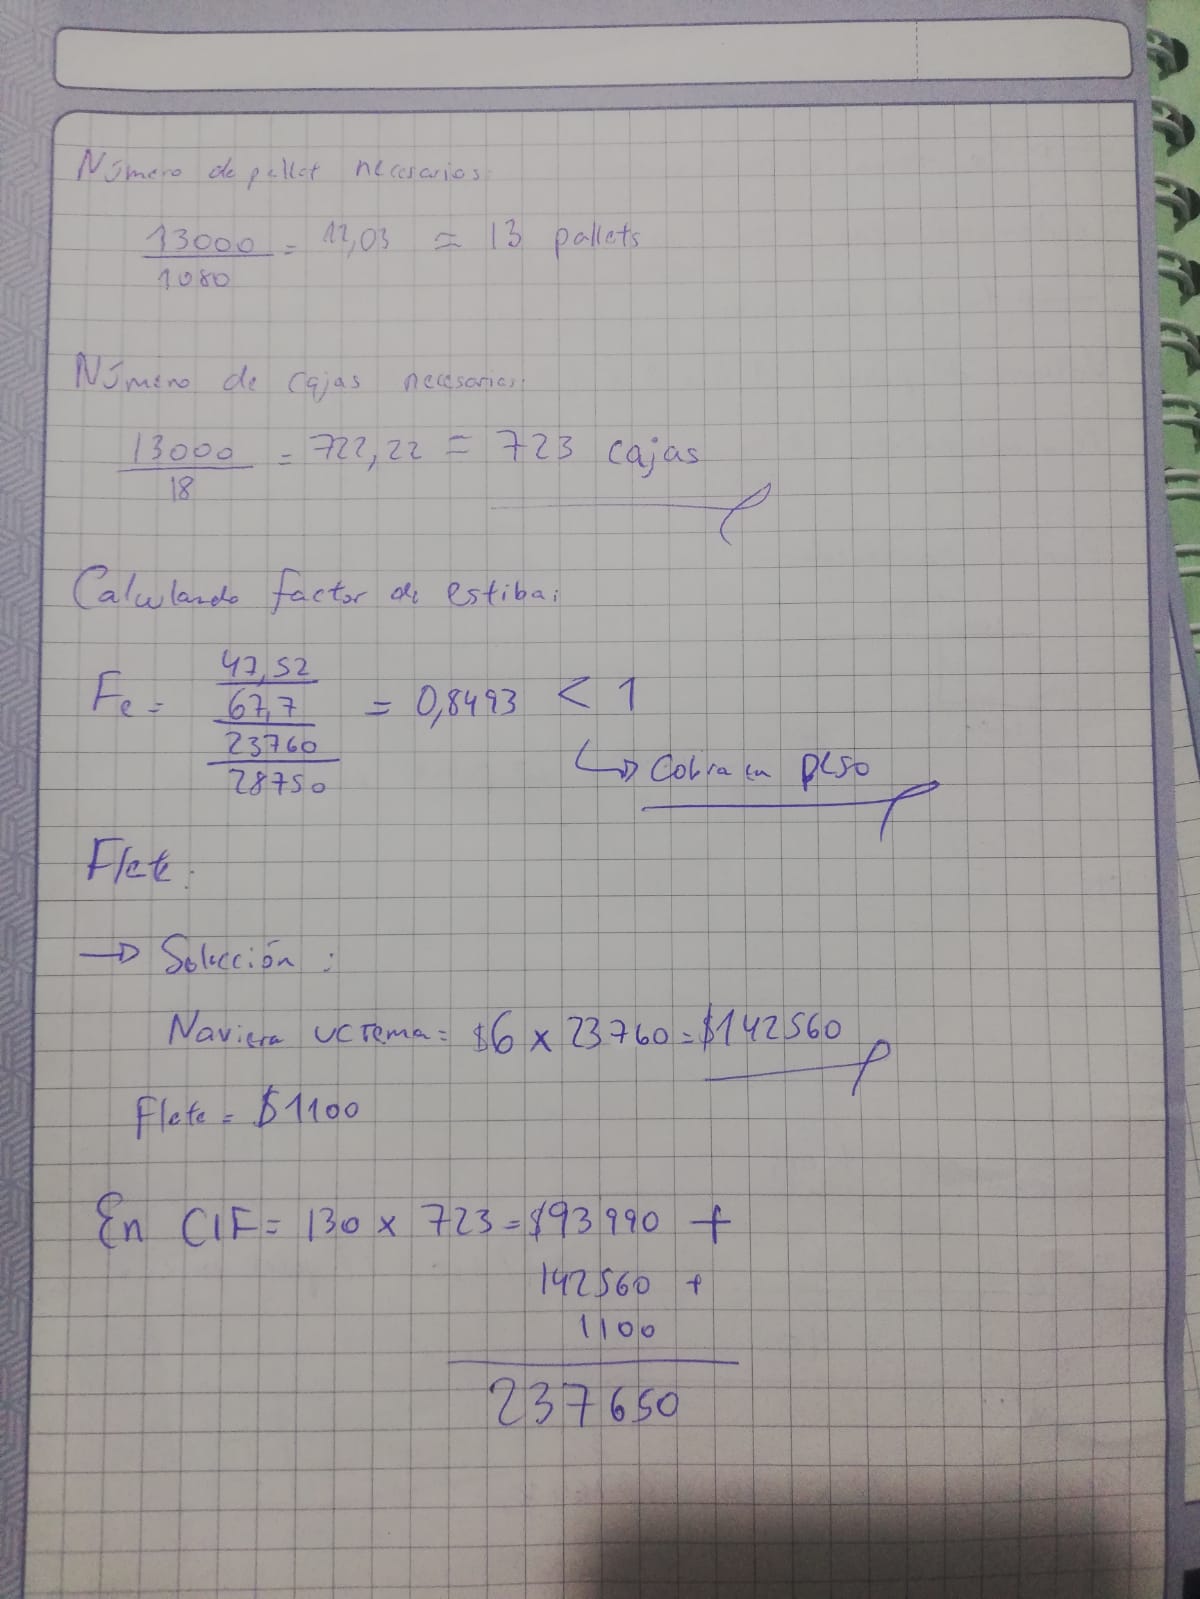 Número de pallet necesarios:
13000 = 12,03 = 13 pallets
1080
Número de cajas necesarias:
13000 = 722,22 = 723 cajas
18
Calculando factor de estiba:
47,52
67,7
Fe = = 0,8493 < 1
23760
28750
↳ Cobra en peso
Flete:
→ Solección:
Naviera UCTEMA = $6 x 23760 = $142560
Flete = $1100
En CIF = 130 x 723 = $93990 +
142560 +
1100
237650